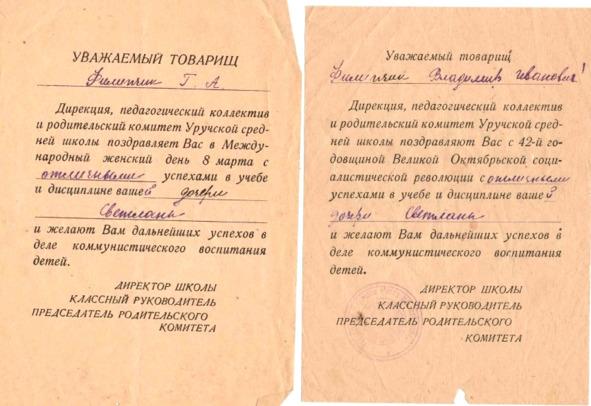 УВАЖАЕМЫЙ ТОВАРИЩ
Филипчик Г. А
Дирекция, педагогический коллектив
и родительский комитет Уручской сред-
ней школы поздравляет Вас в Между-
народный женский день 8 марта с
отличными успехами в учебе
и дисциплине вашей дочери
Светланы
и желают Вам дальнейших успехов в
деле коммунистического воспитания
детей.
ДИРЕКТОР ШКОЛЫ
КЛАССНЫЙ РУКОВОДИТЕЛЬ
ПРЕДСЕДАТЕЛЬ РОДИТЕЛЬСКОГО
КОМИТЕТА
Уважаемый товарищ
Филипчик Владимир Иванович!
Дирекция, педагогический коллектив
и родительский комитет Уручской сред-
ней школы поздравляют Вас с 42-й го-
довщиной Великой Октябрьской социа-
листической революции с отличными
успехами в учебе и дисциплине вашей
дочери Светланы
и желают Вам дальнейших успехов в
деле коммунистического воспитания
детей.
ДИРЕКТОР ШКОЛЫ
КЛАССНЫЙ РУКОВОДИТЕЛЬ
ПРЕДСЕДАТЕЛЬ РОДИТЕЛЬСКОГО
КОМИТЕТА